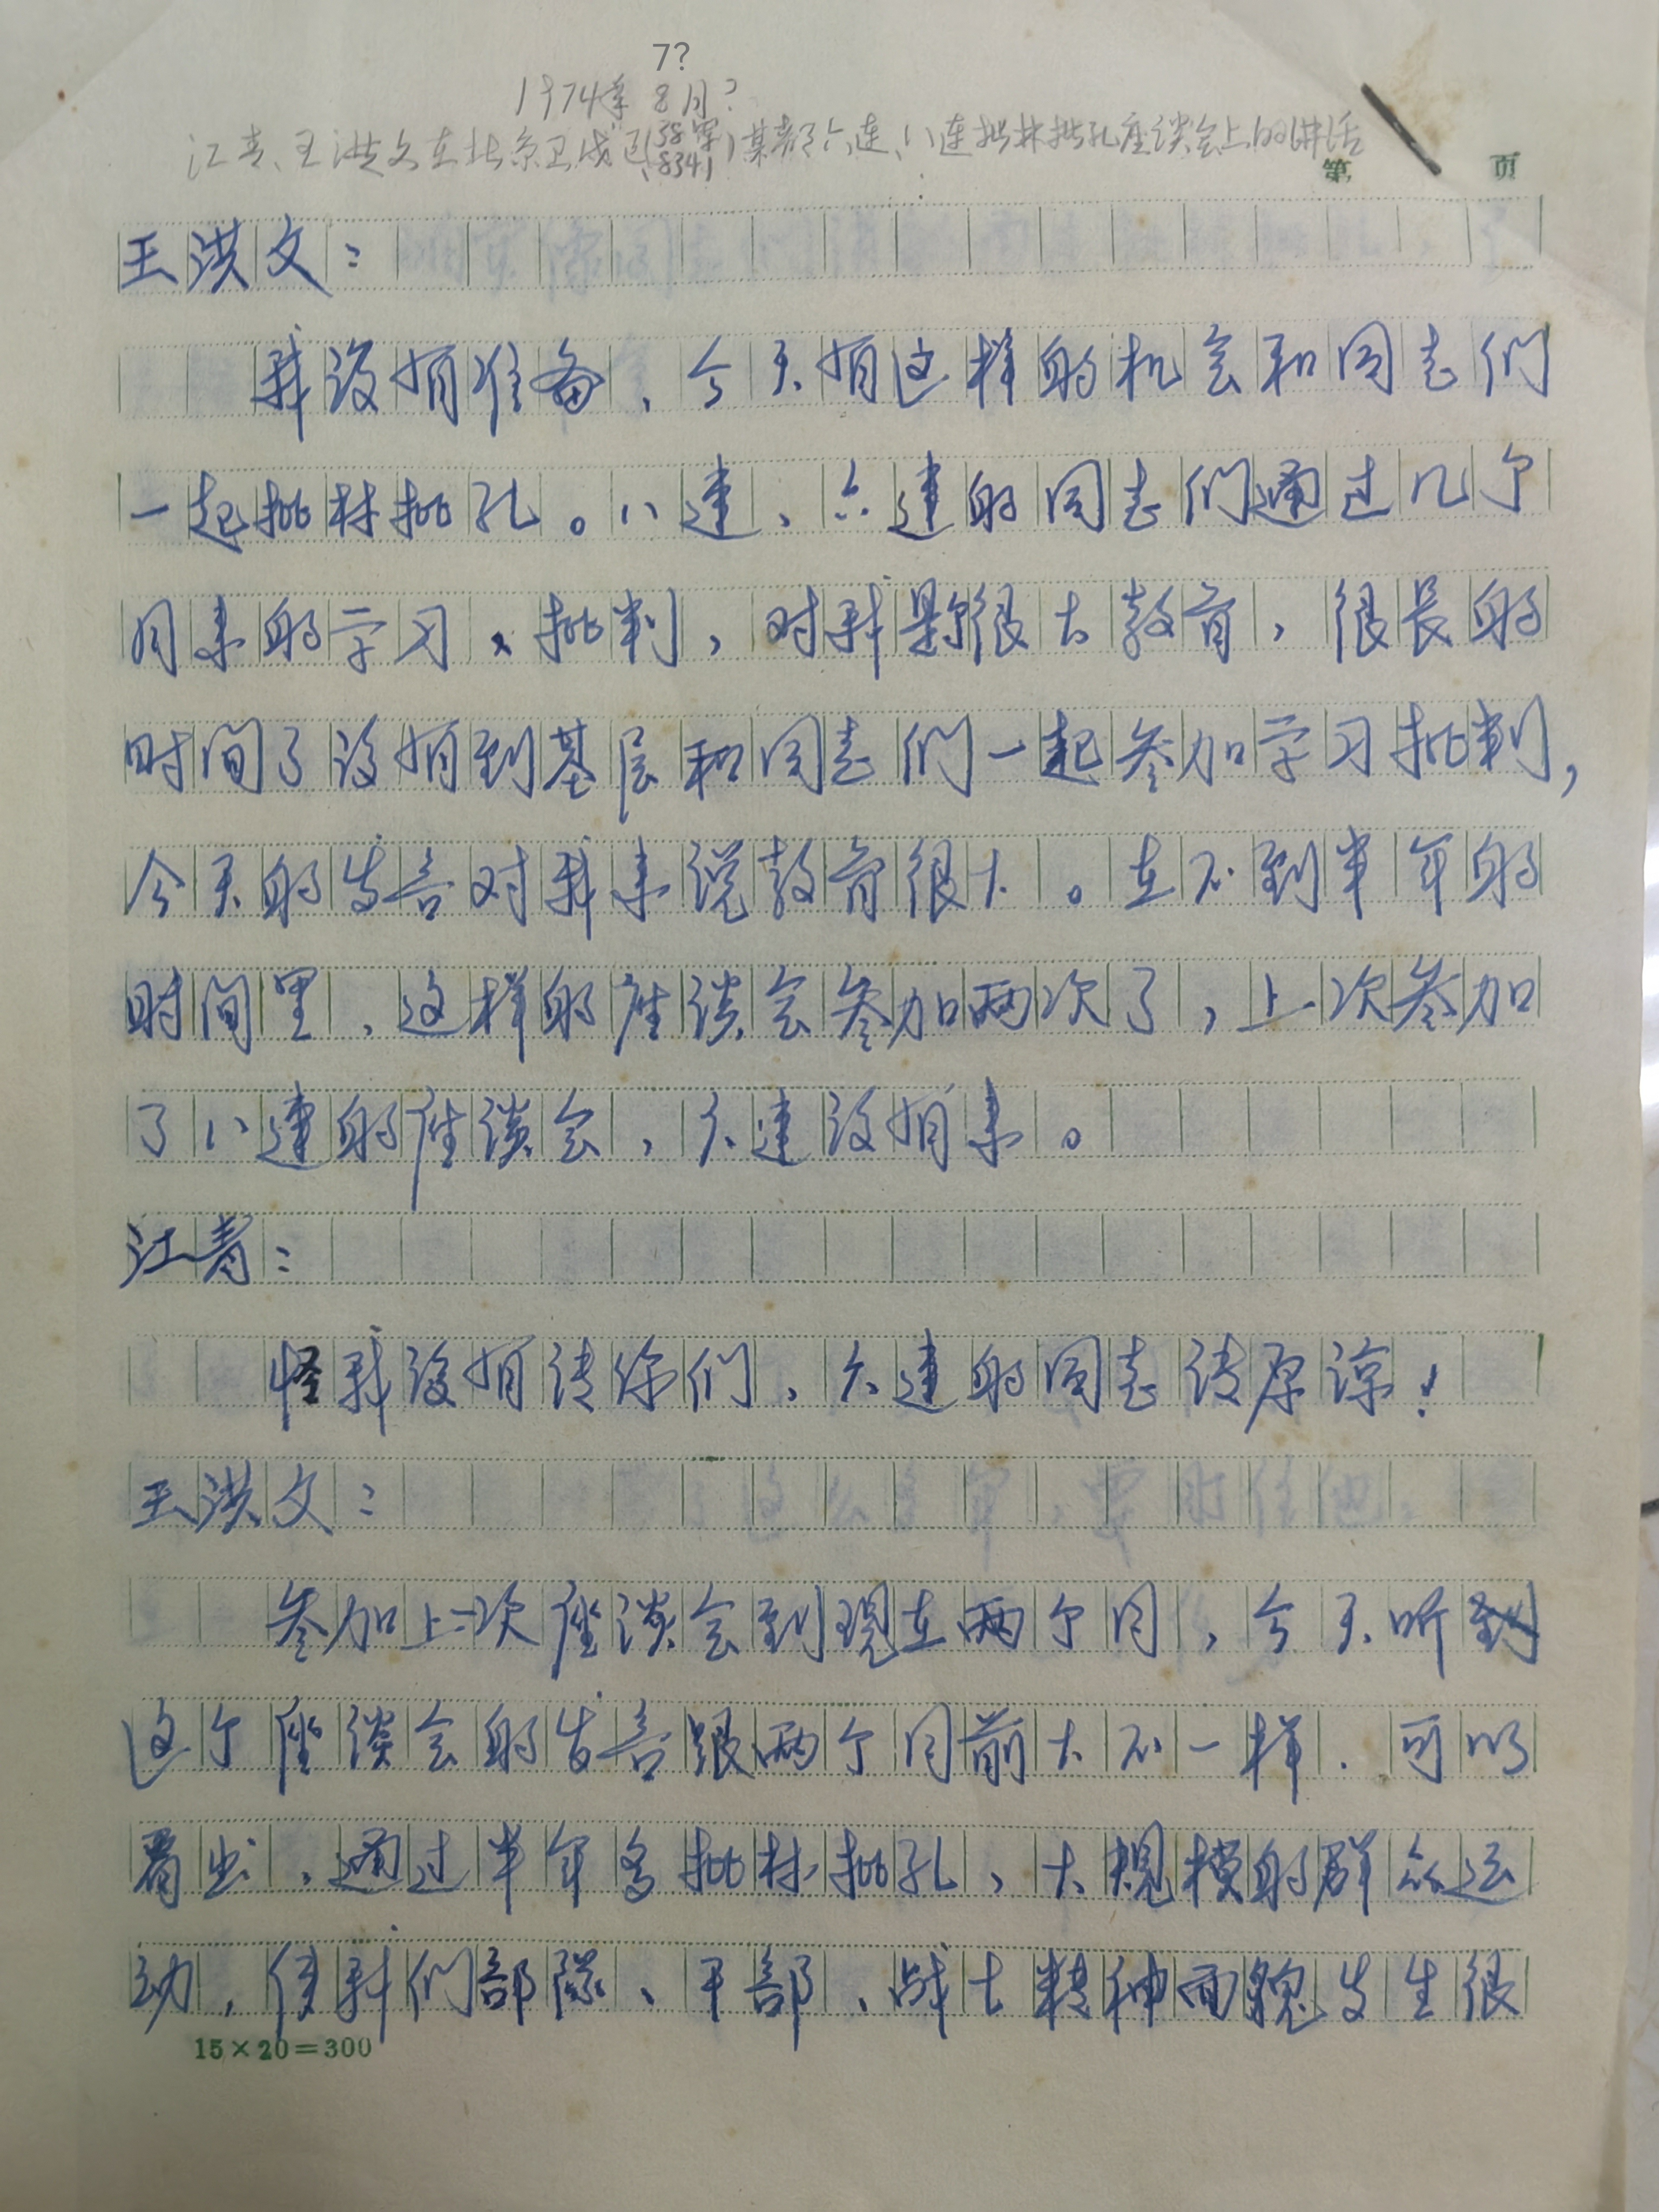 7?
1974年8月?
江青、王洪文在北京卫戍区(38军 8341)某部六连、八连批林批孔座谈会上的讲话
第 页
王洪文：
我没有准备、今天有这样的机会和同志们
一起批林批孔。八连、六连的同志们通过几个
月来的学习、批判，对我是很大教育，很长的
时间了没有到基层和同志们一起参加学习批判，
今天的发言对我来说教育很大。在不到半年的
时间里、这样的座谈会参加两次了，上次参加
了八连的座谈会，六连没有来。
江青：
怪我没有请你们、六连的同志请原谅！
王洪文：
参加上次座谈会到现在两个月，今天听到
这个座谈会的发言跟两个月前大不一样．可以
看出、通过半年多批林批孔，大规模的群众运
动，使我们部队、干部、战士精神面貌发生很
15×20=300